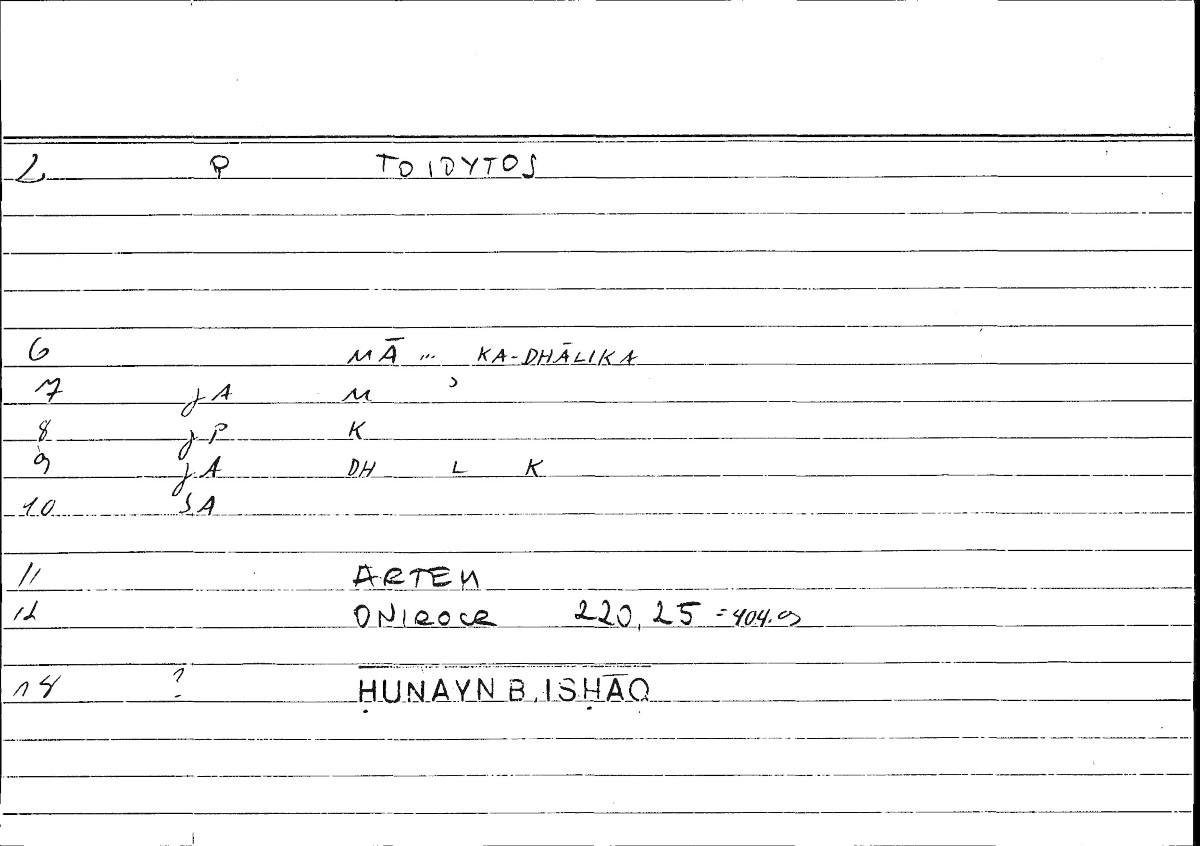 2 P TOIOYTOS
6 MĀ ... KA-DHĀLIKA
7 jA M ʾ
8 jP K
9 jA DH L K
10 SA
11 ARTEM
12 ONIROCR 220, 25 = 404.9
14 ? ḤUNAYN B. ISḤĀQ